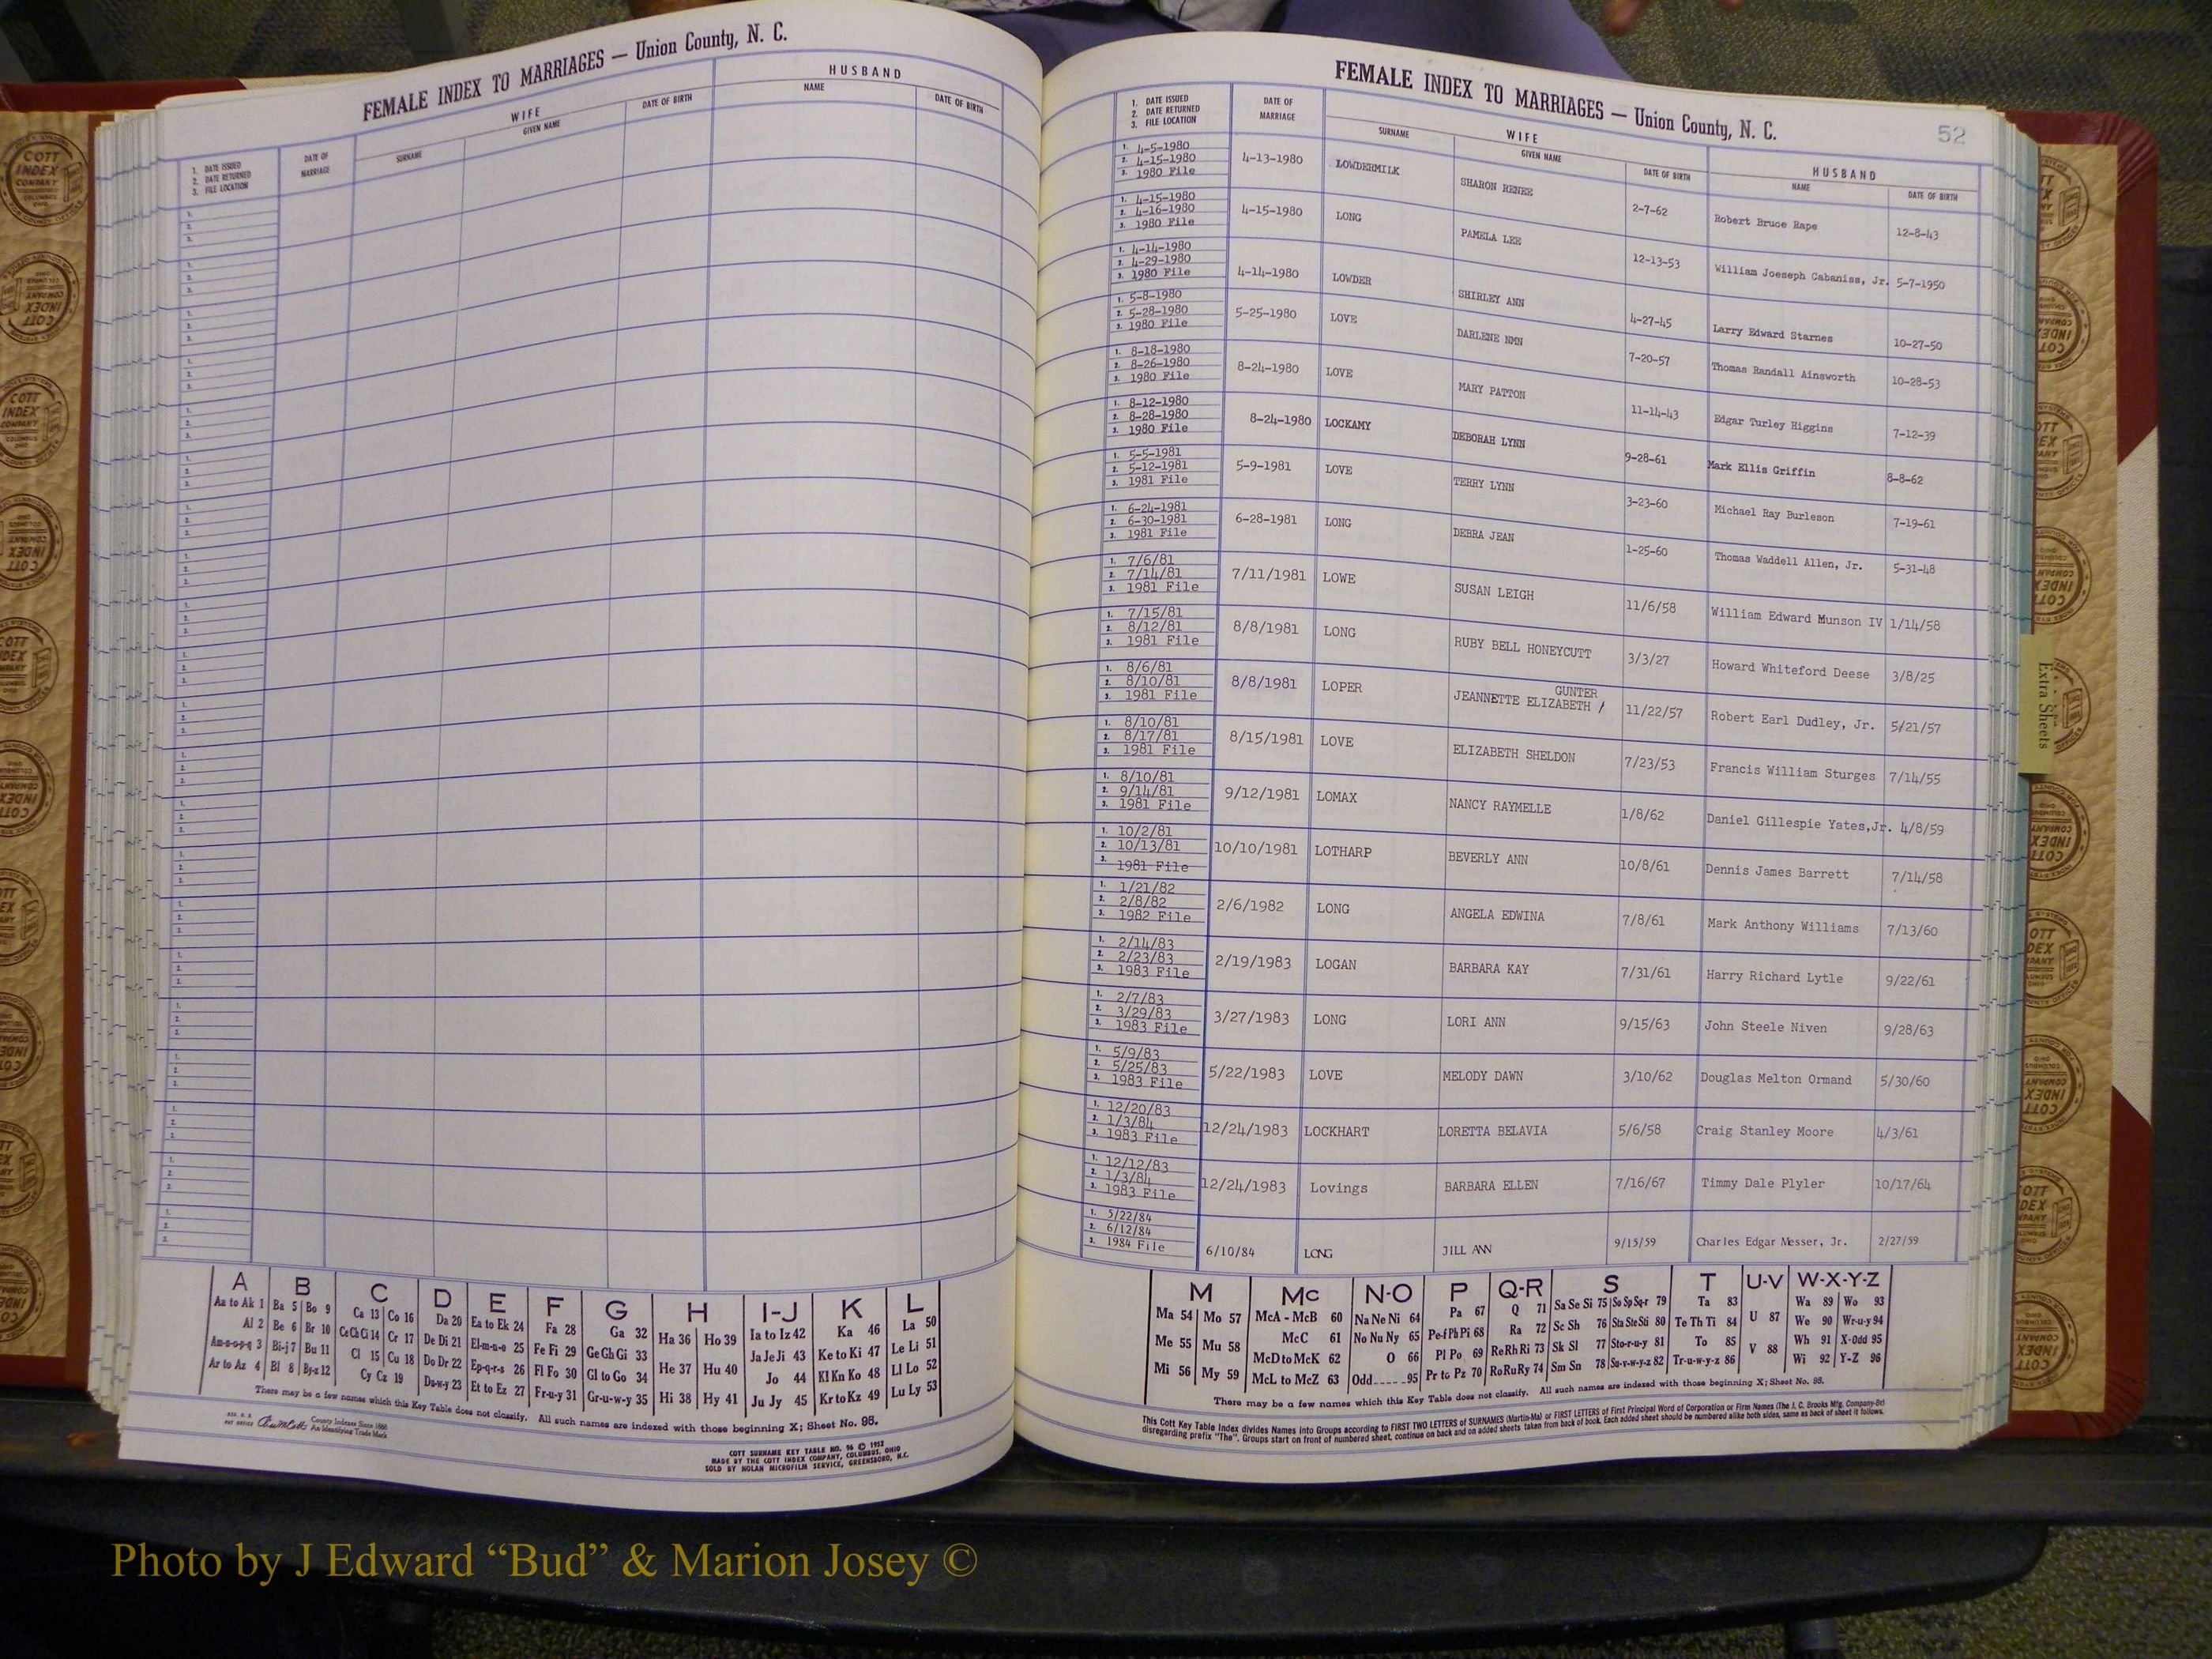 FEMALE INDEX TO MARRIAGES — Union County, N. C.
1. DATE ISSUED
2. DATE RETURNED
3. FILE LOCATION
DATE OF MARRIAGE
WIFE
SURNAME
GIVEN NAME
DATE OF BIRTH
HUSBAND
NAME
DATE OF BIRTH
A B C D E F G H I-J K L
Aa to Ak 1 Ba 5 Bo 9 Ca 13 Co 16 Da 20 Ea to Ek 24 Fa 28 Ga 32 Ha 36 Ho 39 Ia to Iz 42 Ka 46 La 50
Al 2 Be 6 Br 10 Ce Ch Ci 14 Cr 17 De Di 21 El-m-n-o 25 Fe Fi 29 Ge Gh Gi 33 He 37 Hu 40 Ja Je Ji 43 Ke to Ki 47 Le Li 51
Am-n-o-p-q 3 Bi-j 7 Bu 11 Cl 15 Cu 18 Do Dr 22 Ep-q-r-s 26 Fl Fo 30 Gl to Go 34 Hi 38 Hy 41 Jo 44 Kl Kn Ko 48 Ll Lo 52
Ar to Az 4 Bl 8 By-z 12 Cy Cz 19 Du-w-y 23 Et to Ez 27 Fr-u-y 31 Gr-u-w-y 35 Ju Jy 45 Kr to Kz 49 Lu Ly 53
There may be a few names which this Key Table does not classify. All such names are indexed with those beginning X; Sheet No. 95.
County Indexes Since 1888
An Identifying Trade Mark
COTT SURNAME KEY TABLE NO. 96 © 1952
MADE BY THE COTT INDEX COMPANY, COLUMBUS, OHIO
SOLD BY NOLAN MICROFILM SERVICE, GREENSBORO, N.C.
FEMALE INDEX TO MARRIAGES — Union County, N. C.
52
1. DATE ISSUED
2. DATE RETURNED
3. FILE LOCATION
DATE OF MARRIAGE
WIFE
SURNAME
GIVEN NAME
DATE OF BIRTH
HUSBAND
NAME
DATE OF BIRTH
1. 4-5-1980
2. 4-15-1980
3. 1980 File
4-13-1980 LOWDERMILK SHARON RENEE 2-7-62 Robert Bruce Rape 12-8-43
1. 4-15-1980
2. 4-16-1980
3. 1980 File
4-15-1980 LONG PAMELA LEE 12-13-53 William Joeseph Cabaniss, Jr. 5-7-1950
1. 4-14-1980
2. 4-29-1980
3. 1980 File
4-14-1980 LOWDER SHIRLEY ANN 4-27-45 Larry Edward Starnes 10-27-50
1. 5-8-1980
2. 5-28-1980
3. 1980 File
5-25-1980 LOVE DARLENE NMN 7-20-57 Thomas Randall Ainsworth 10-28-53
1. 8-18-1980
2. 8-26-1980
3. 1980 File
8-24-1980 LOVE MARY PATTON 11-14-43 Edgar Turley Higgins 7-12-39
1. 8-12-1980
2. 8-28-1980
3. 1980 File
8-24-1980 LOCKAMY DEBORAH LYNN 9-28-61 Mark Ellis Griffin 8-8-62
1. 5-5-1981
2. 5-12-1981
3. 1981 File
5-9-1981 LOVE TERRY LYNN 3-23-60 Michael Ray Burleson 7-19-61
1. 6-24-1981
2. 6-30-1981
3. 1981 File
6-28-1981 LONG DEBRA JEAN 1-25-60 Thomas Waddell Allen, Jr. 5-31-48
1. 7/6/81
2. 7/14/81
3. 1981 File
7/11/1981 LOWE SUSAN LEIGH 11/6/58 William Edward Munson IV 1/14/58
1. 7/15/81
2. 8/12/81
3. 1981 File
8/8/1981 LONG RUBY BELL HONEYCUTT 3/3/27 Howard Whiteford Deese 3/8/25
1. 8/6/81
2. 8/10/81
3. 1981 File
8/8/1981 LOPER JEANNETTE ELIZABETH / GUNTER 11/22/57 Robert Earl Dudley, Jr. 5/21/57
1. 8/10/81
2. 8/17/81
3. 1981 File
8/15/1981 LOVE ELIZABETH SHELDON 7/23/53 Francis William Sturges 7/14/55
1. 8/10/81
2. 9/14/81
3. 1981 File
9/12/1981 LOMAX NANCY RAYMELLE 1/8/62 Daniel Gillespie Yates,Jr. 4/8/59
1. 10/2/81
2. 10/13/81
3. 1981 File
10/10/1981 LOTHARP BEVERLY ANN 10/8/61 Dennis James Barrett 7/14/58
1. 1/21/82
2. 2/8/82
3. 1982 File
2/6/1982 LONG ANGELA EDWINA 7/8/61 Mark Anthony Williams 7/13/60
1. 2/14/83
2. 2/23/83
3. 1983 File
2/19/1983 LOGAN BARBARA KAY 7/31/61 Harry Richard Lytle 9/22/61
1. 2/7/83
2. 3/29/83
3. 1983 File
3/27/1983 LONG LORI ANN 9/15/63 John Steele Niven 9/28/63
1. 5/9/83
2. 5/25/83
3. 1983 File
5/22/1983 LOVE MELODY DAWN 3/10/62 Douglas Melton Ormand 5/30/60
1. 12/20/83
2. 1/3/84
3. 1983 File
12/24/1983 LOCKHART LORETTA BELAVIA 5/6/58 Craig Stanley Moore 4/3/61
1. 12/12/83
2. 1/3/84
3. 1983 File
12/24/1983 Lovings BARBARA ELLEN 7/16/67 Timmy Dale Plyler 10/17/64
1. 5/22/84
2. 6/12/84
3. 1984 File
6/10/84 LONG JILL ANN 9/15/59 Charles Edgar Messer, Jr. 2/27/59
M Mc N-O P Q-R S T U-V W-X-Y-Z
Ma 54 Mo 57 McA - McB 60 Na Ne Ni 64 Pa 67 Q 71 Sa Se Si 75 So Sp Sq-r 79 Ta 83 U 87 Wa 89 Wo 93
Me 55 Mu 58 McC 61 No Nu Ny 65 Pe-f Ph Pi 68 Ra 72 Sc Sh 76 Sta Ste Sti 80 Te Th Ti 84 V 88 We 90 Wr-u-y 94
Mi 56 My 59 McD to McK 62 O 66 Pl Po 69 Re Rh Ri 73 Sk Sl 77 Sto-r-u-y 81 To 85 Wh 91 X-Odd 95
McL to McZ 63 Odd 95 Pr to Pz 70 Ro Ru Ry 74 Sm Sn 78 Su-v-w-y-z 82 Tr-u-w-y-z 86 Wi 92 Y-Z 96
There may be a few names which this Key Table does not classify. All such names are indexed with those beginning X; Sheet No. 95.
This Cott Key Table Index divides Names into Groups according to FIRST TWO LETTERS of SURNAMES (Martin-Ma) or FIRST LETTERS of First Principal Word of Corporation or Firm Names (The J. C. Brooks Mfg. Company-Br)
disregarding prefix "The". Groups start on front of numbered sheet, continue on back and on added sheets taken from back of book. Each added sheet should be numbered alike both sides, same as back of sheet it follows.
Extra Sheets
COTT INDEX COMPANY COLUMBUS OHIO
Photo by J Edward “Bud” & Marion Josey ©